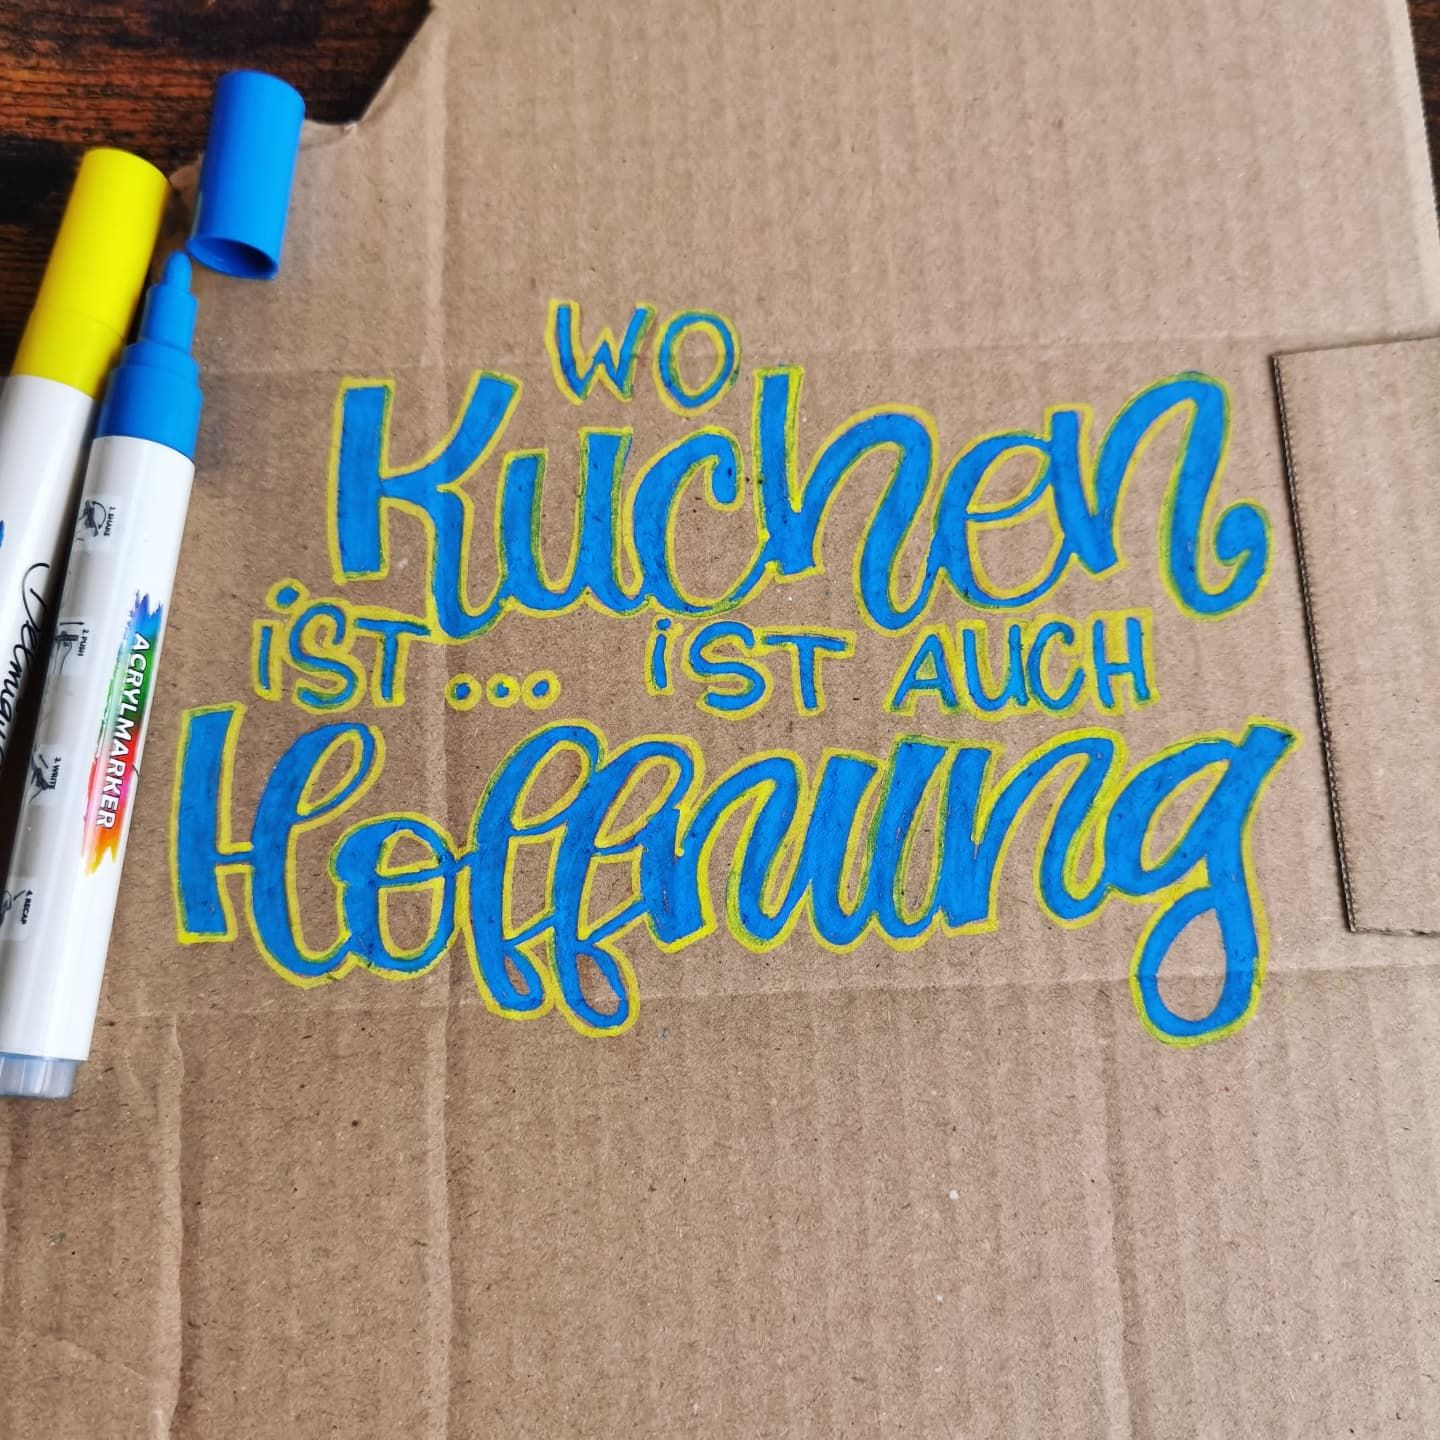 WO
Kuchen
iST... iST AUCH
Hoffnung
ACRYLMARKER
1. SHAKE
2. PUSH
3. WRITE
4. RECAP